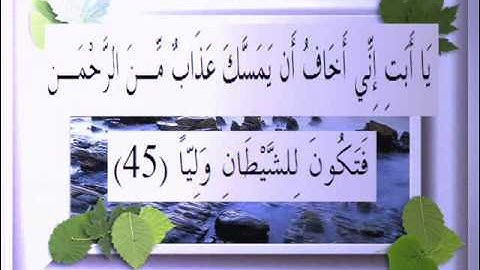 يَا أَبَتِ إِنِّي أَخَافُ أَن يَمَسَّكَ عَذَابٌ مِّنَ الرَّحْمَن
فَتَكُونَ لِلشَّيْطَانِ وَلِيّاً (45)